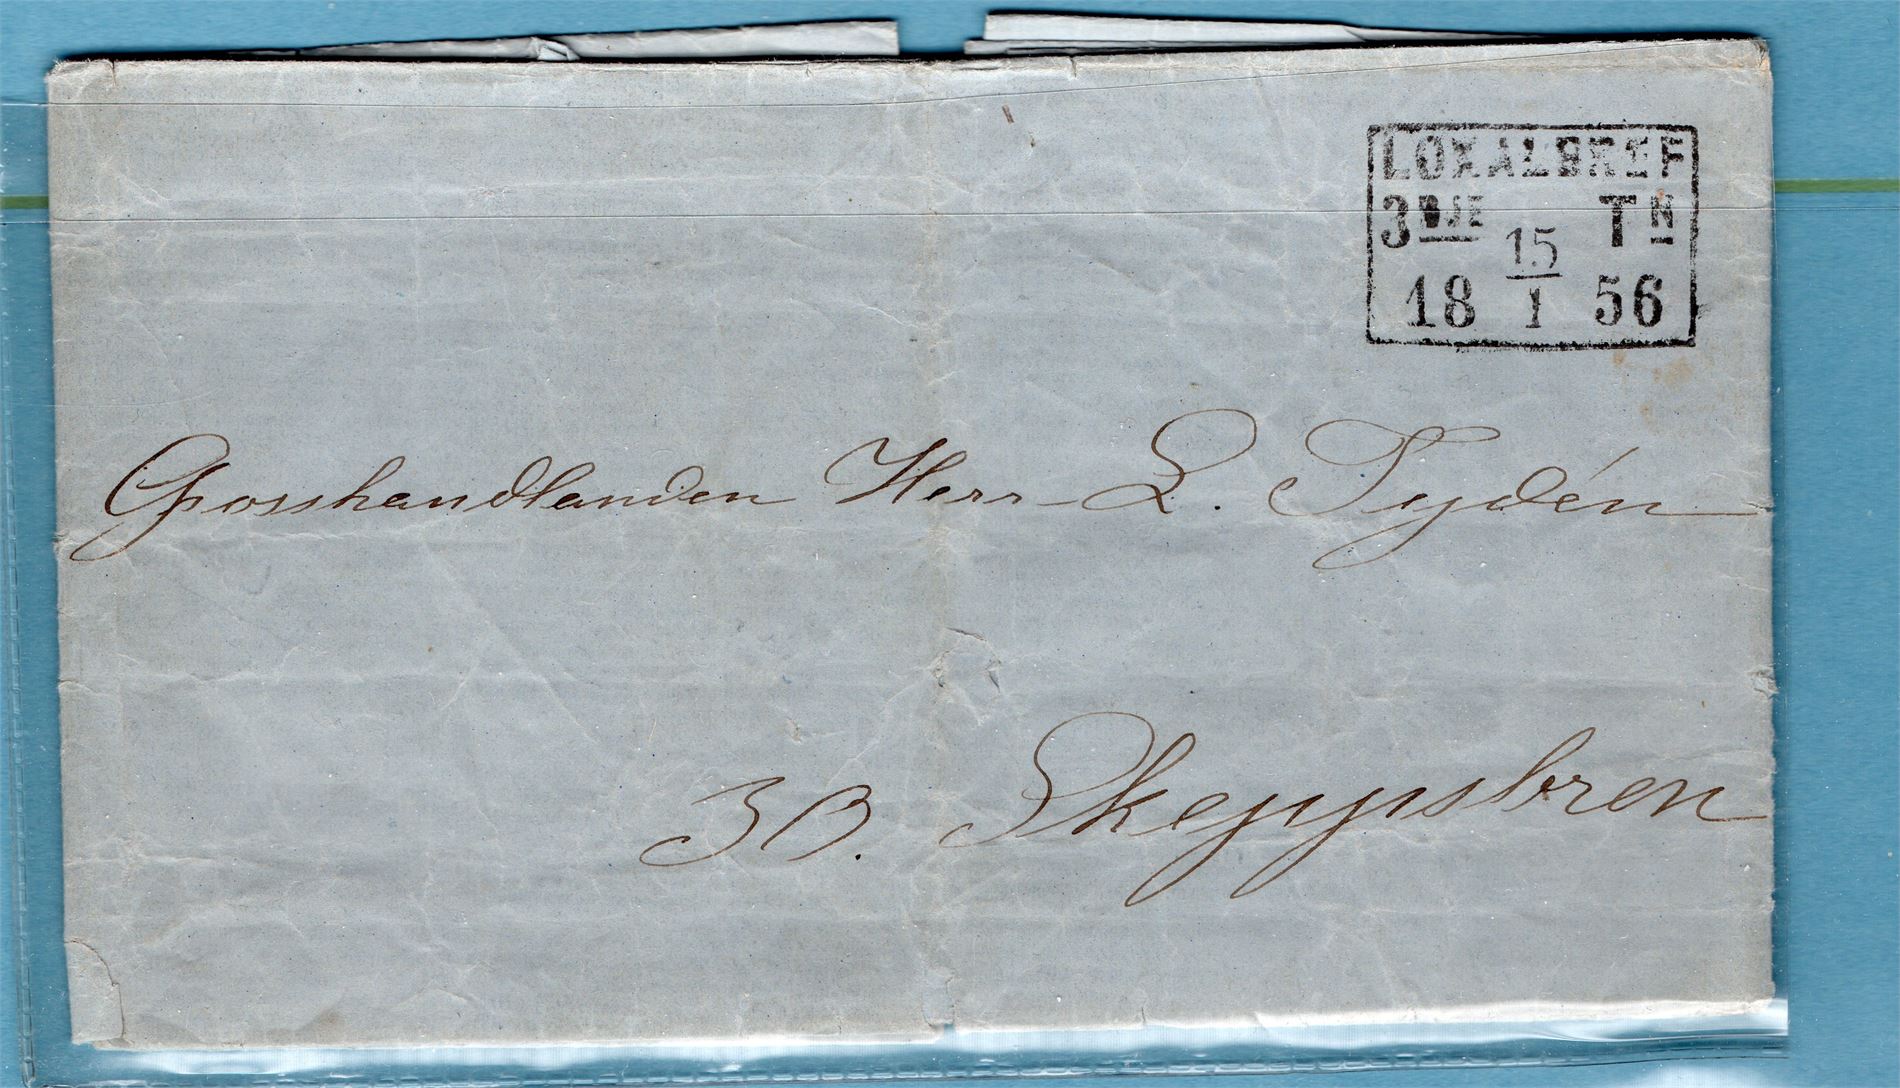 LOKALBREF
3DJE TN
15
18 1 56
Grosshandlanden Herr L. Tydén
30. Skeppsbren